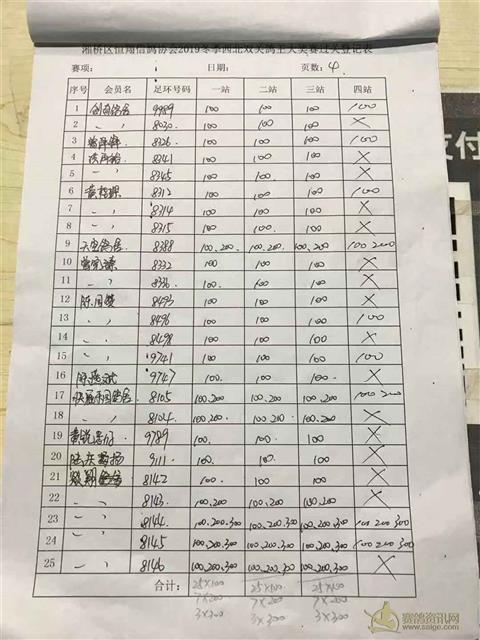 湘桥区恒翔信鸽协会2019冬季西北双关鸽王大奖赛过关登记表
赛项： 日期： 页数：4.
序号 会员名 足环号码 一站 二站 三站 四站
1 创奇鸽舍 9989 100 100 100 100
2 〃 8030 100 100 100 X
3 8326 100 100 100 100
4 8341 100 100 100 X
5 〃 8345 100 100 100 X
6 8312 100 100 100 100
7 〃 8314 100 100 100 X
8 〃 8315 100 100 100 X
9 天宝鸽舍 8388 100.200 100.200 100.200 100 200
10 8332 100 100 100 X
11 〃 8336 100 100 100 X
12 8493 100 100 100 X
13 〃 8496 100 100 100 100
14 〃 8498 100 100 100 X
15 〃 9741 100 100 100 100
16 9747 100. 100 100 X
17 8105 100.200 100.200 100.200 100 200
18 〃 8104 100.200 100.200 100.200 X
19 9789 100 100 100 X
20 9111 100 100 100 X
21 骏翔鸽舍 8142 100 100 100 X
22 〃 8143 100.200 100.200 100.200 X
23 〃 8144 100.200.300 100.200.300 100.200.300 100 200 300
24 〃 8145 100.200.300 100.200.300 100.200.300 100 200 300
25 〃 8146 100.200.300 100.200.300 100.200.300 X
合计： 25×100 25×100 25×100
7×200 7×200 7×200
3×300 3×300 3×300
支付
赛鸽资讯网
www.saige.com